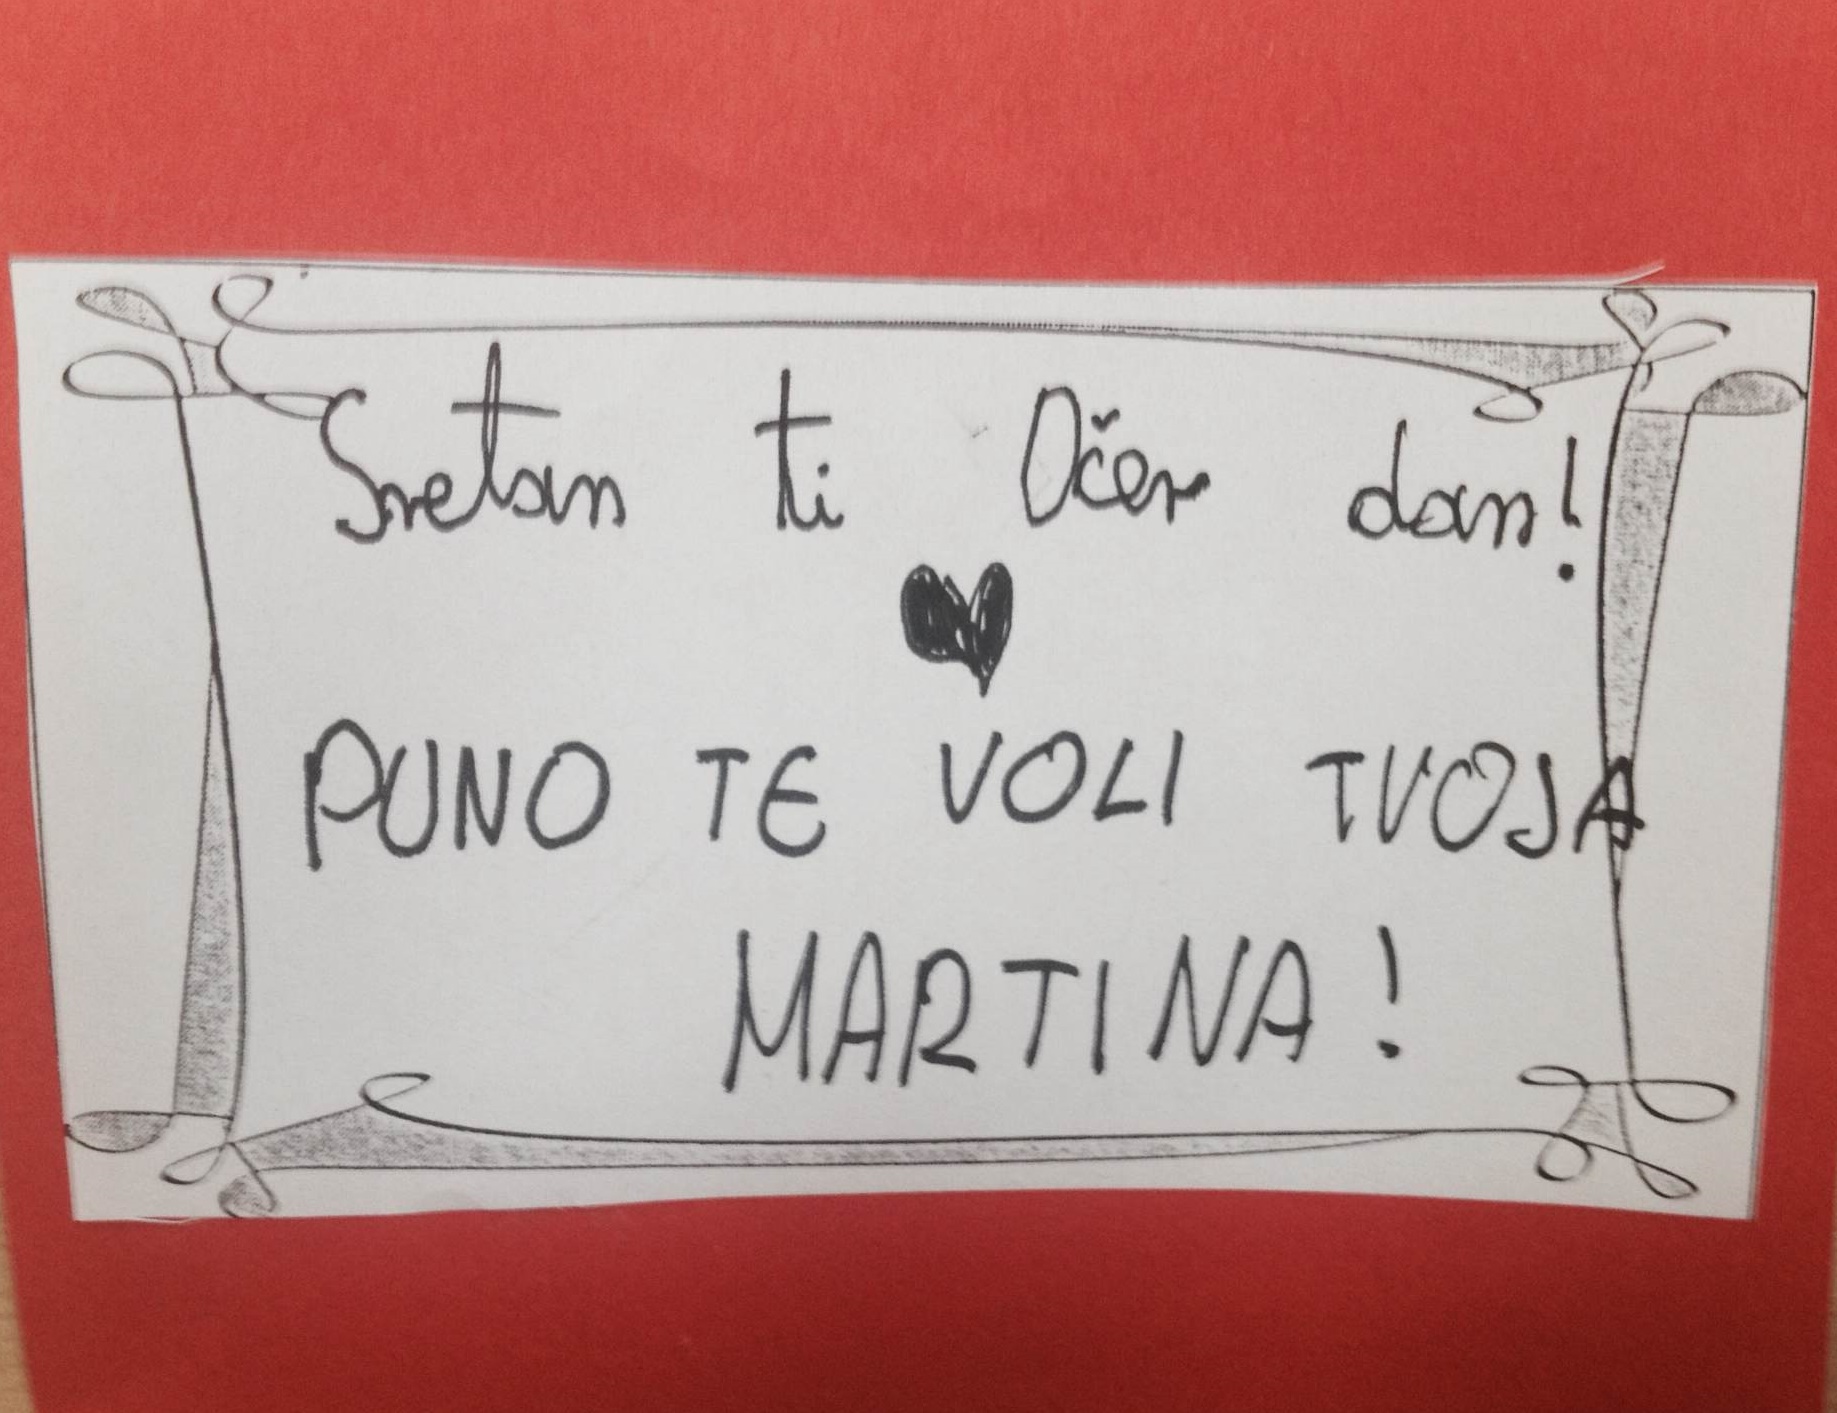 Sretan ti Očev dan!
PUNO TE VOLI TVOJA
MARTINA!